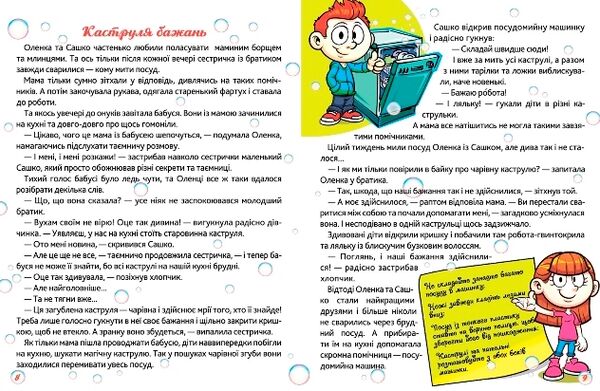 Каструля бажань
Оленка та Сашко частенько любили поласувати маминим борщем
та млинцями. Та ось тільки після кожної вечері сестричка із братиком
завжди сварилися — кому мити посуд.
Мама тільки сумно зітхали у відповідь, дивлячись на таких поміч-
ників. А потім закочувала рукава, одягала старенький фартух і ставала
до роботи.
Та якось увечері до онуків завітала бабуся. Вони із мамою зачинилися
на кухні та довго-довго про щось гомоніли.
— Цікаво, чого це мама із бабусею шепочуться, — подумала Оленка,
намагаючись підслухати таємничу розмову.
— І мені, і мені розкажи! — застрибав навколо сестрички маленький
Сашко, який просто обожнював різні секрети та таємниці.
Тихий голос бабусі було ледь чути, та Оленці все ж таки вдалося
розібрати декілька слів.
— Що, що вона сказала? — усе ніяк не заспокоювався молодший
братик.
— Вухам своїм не вірю! Оце так дивина! — вигукнула радісно дів-
чинка. — Уявляєш, у нас на кухні стоїть старовинна каструля.
— Ото мені новина, — скривився Сашко.
— Але це ще не все, — таємничо продовжила сестричка, — і тепер ба-
буся не може її знайти, бо всі каструлі на нашій кухні брудні.
— Оце так здивувала, — позіхнув хлопчик.
— Але найголовніше...
— Та не тягни вже...
— Ця загублена каструля — чарівна і здійснює мрії того, хто її знайде!
Треба лише голосно гукнути в неї своє бажання і щільно закрити криш-
кою, щоб не втекло. А зранку воно збудеться, — випалила сестричка.
Як тільки мама пішла проводжати бабусю, діти наввипередки побігли
на кухню, шукати магічну каструлю. Так у пошуках чарівної згуби вони
заходилися перемивати увесь посуд.
8
Сашко відкрив посудомийну машинку
і радісно гукнув:
— Складай швидше сюди!
І вже за мить усі каструлі, а разом
з ними тарілки та ложки виблискува-
ли, наче новенькі.
— Бажаю робота!
— І ляльку! — гукали діти в різні ка-
струльки.
А мама все натішитись не могла такими завзя-
тими помічниками.
Цілий тиждень мили посуд Оленка із Сашком, але дива так і не ста-
лося...
— І як ми тільки повірили в байку про чарівну каструлю? — запитала
Оленка у братика.
— Так, шкода, що наші бажання так і не здійснилися, — зітхнув той.
— А моє здійснилося, — раптом відповіла мама. — Ви перестали сва-
ритися між собою та почали допомагати мені, — загадково усміхнулася
вона. І несподівано в одній каструльці щось задзижчало.
Здивовані діти відкрили кришку і побачили там робота-гвинтокрила
та ляльку із блискучим бузковим волоссям.
— Поглянь, і наші бажання здійсни-
лися! — радісно застрибав
хлопчик.
Відтоді Оленка та Саш-
ко стали найкращими
друзями і більше ніколи
не сварились через бруд-
ний посуд. А прибира-
ти їм на кухні допомагала
скромна помічниця — посу-
домийна машина.
Не складайте занадто багато
посуду в машинку.
Ножі завжди кладіть лезами
вниз.
Посуд із тонкого пластику
ставте на верхню полицю, щоб
зберегти його від пошкоджень.
Каструлі та пательні
розташовуйте з обох боків
машинки.
9